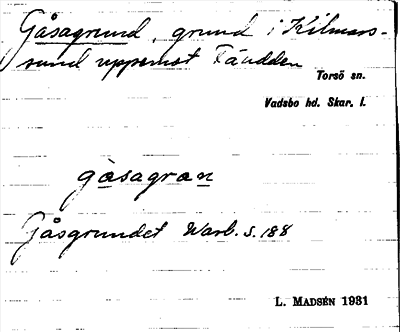 Gåsagrund, grund i Kilmars-
sund uppemot Täudden
Torsö sn.
Vadsbo hd. Skar. l.
gåsagran
Gåsgrundet Warb. s. 188
L. MADSÉN 1931